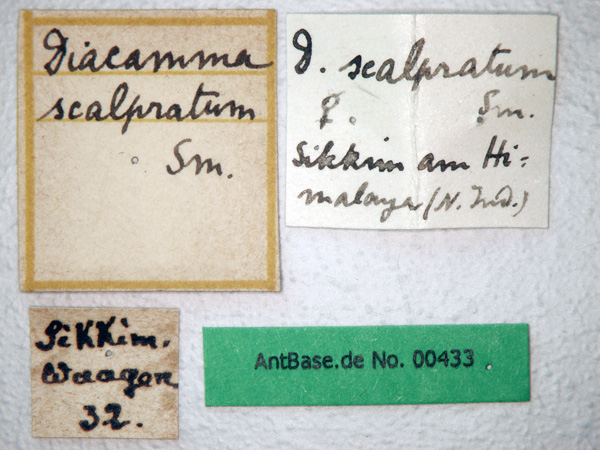 Diacamma
scalpratum
Sm.
D. scalpratum
☿. Sm.
Sikkim am Hi-
malaya (N. Ind.)
Sikkim.
Waagen
32.
AntBase.de No. 00433